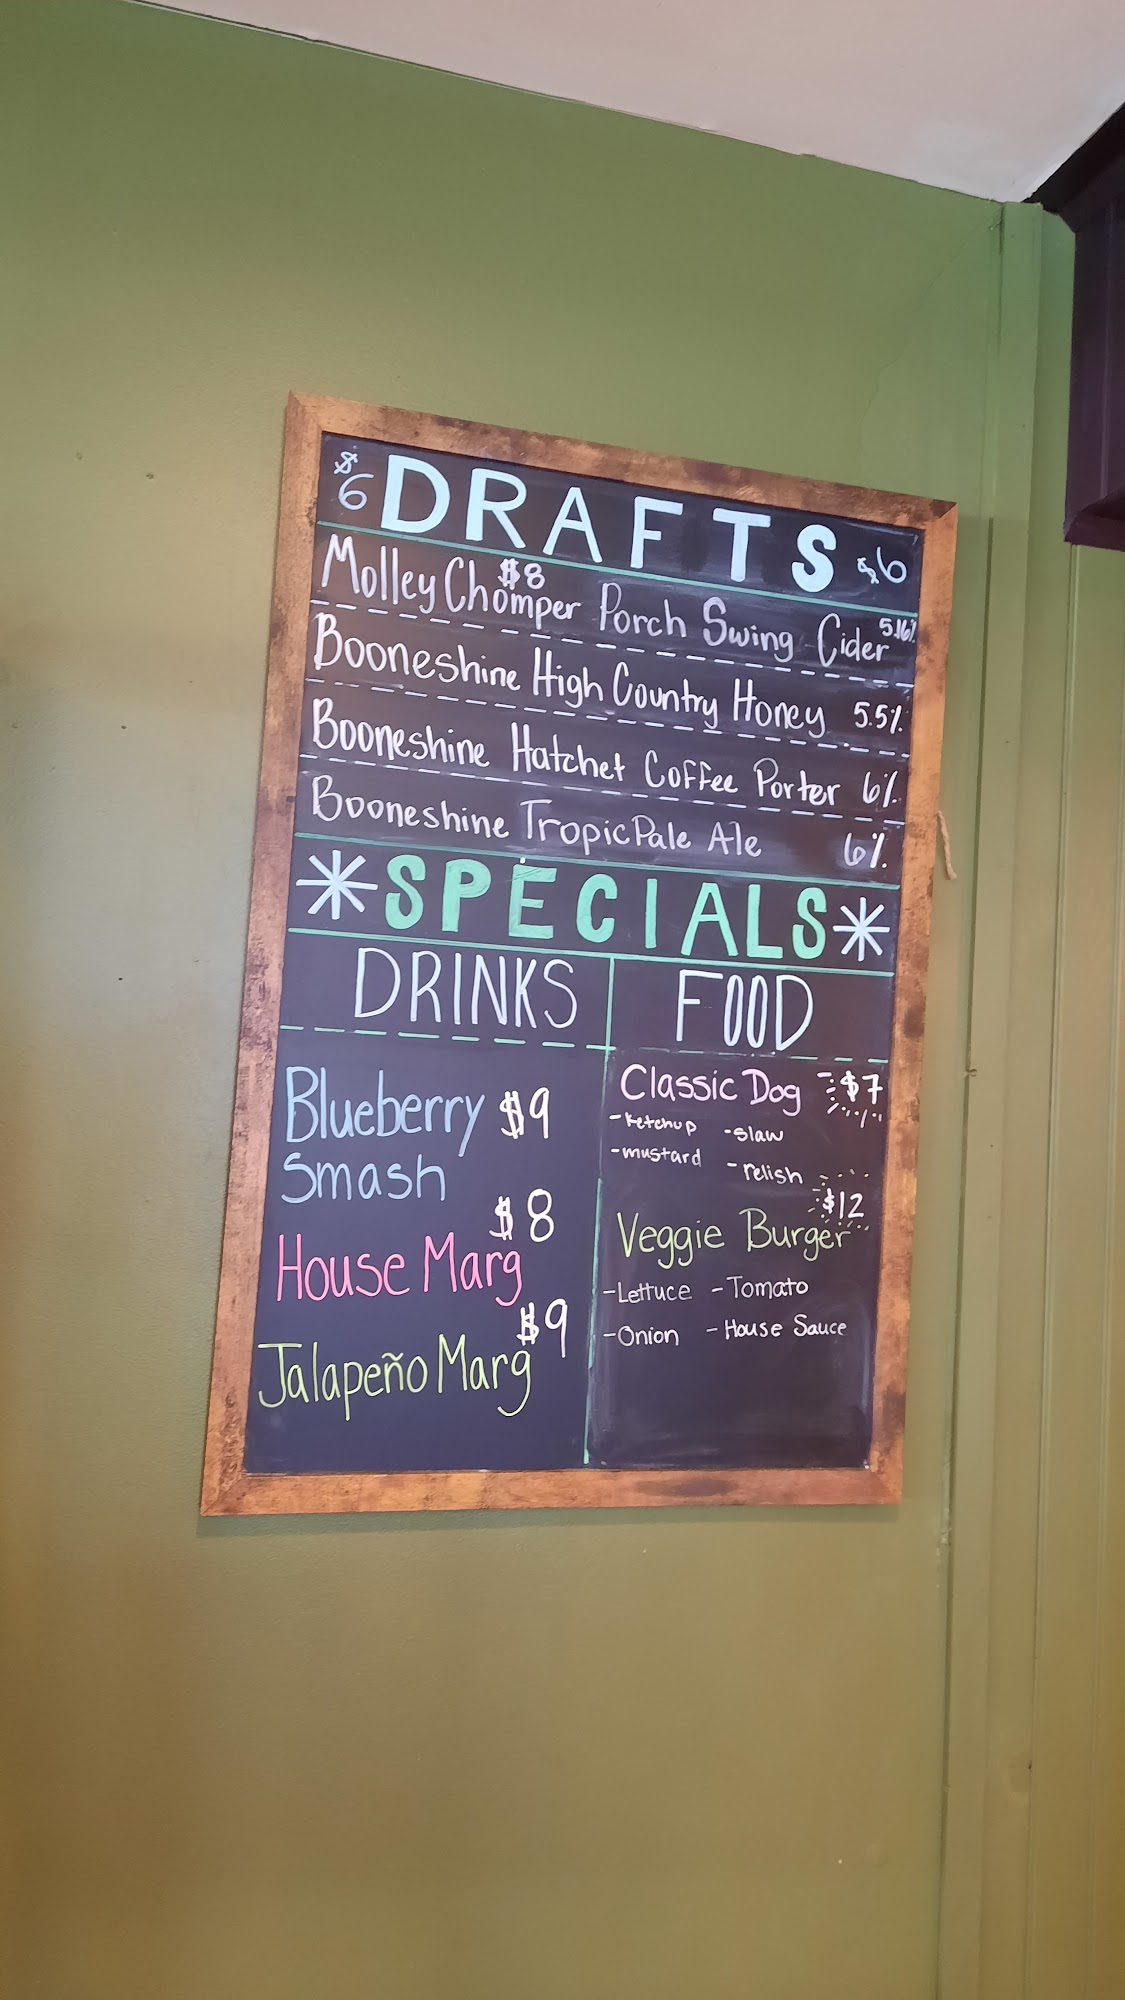 $6 DRAFTS $6
$8
Molley Chomper Porch Swing Cider 5.16%
Booneshine High Country Honey 5.5%
Booneshine Hatchet Coffee Porter 6%
Booneshine Tropic Pale Ale 6%
SPECIALS
DRINKS
Blueberry $9
Smash
$8
House Marg
$9
Jalapeño Marg
FOOD
Classic Dog $7
-ketchup -slaw
-mustard -relish
$12
Veggie Burger
-Lettuce -Tomato
-Onion -House Sauce